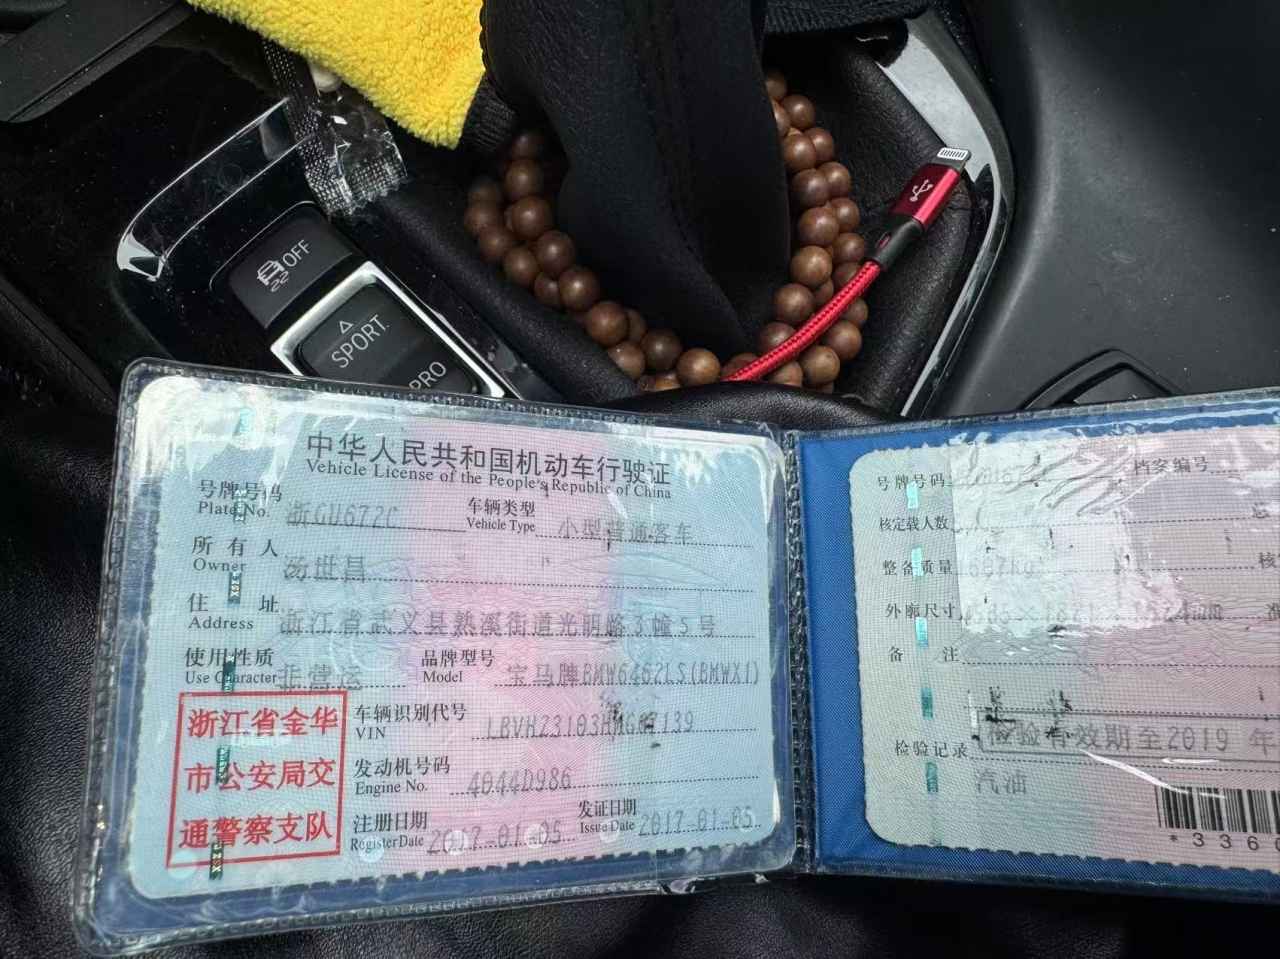 OFF
SPORT
中华人民共和国机动车行驶证
Vehicle License of the People's Republic of China
号牌号码 浙GU672C 车辆类型 小型普通客车
Plate No. Vehicle Type
所有人 汤世昌
Owner
住址 浙江省武义县熟溪街道光明路3幢5号
Address
使用性质 非营运 品牌型号 宝马牌BMW6462LS(BMWX1)
Use Character Model
浙江省金华
市公安局交
通警察支队
车辆识别代号
VIN
发动机号码 4044D986
Engine No.
注册日期 2017-01-05 发证日期 2017-01-05
Register Date Issue Date
号牌号码 档案编号
核定载人数
整备质量 1687kg 核
外廓尺寸
备注
检验记录 检验有效期至2019 年
汽油
*336